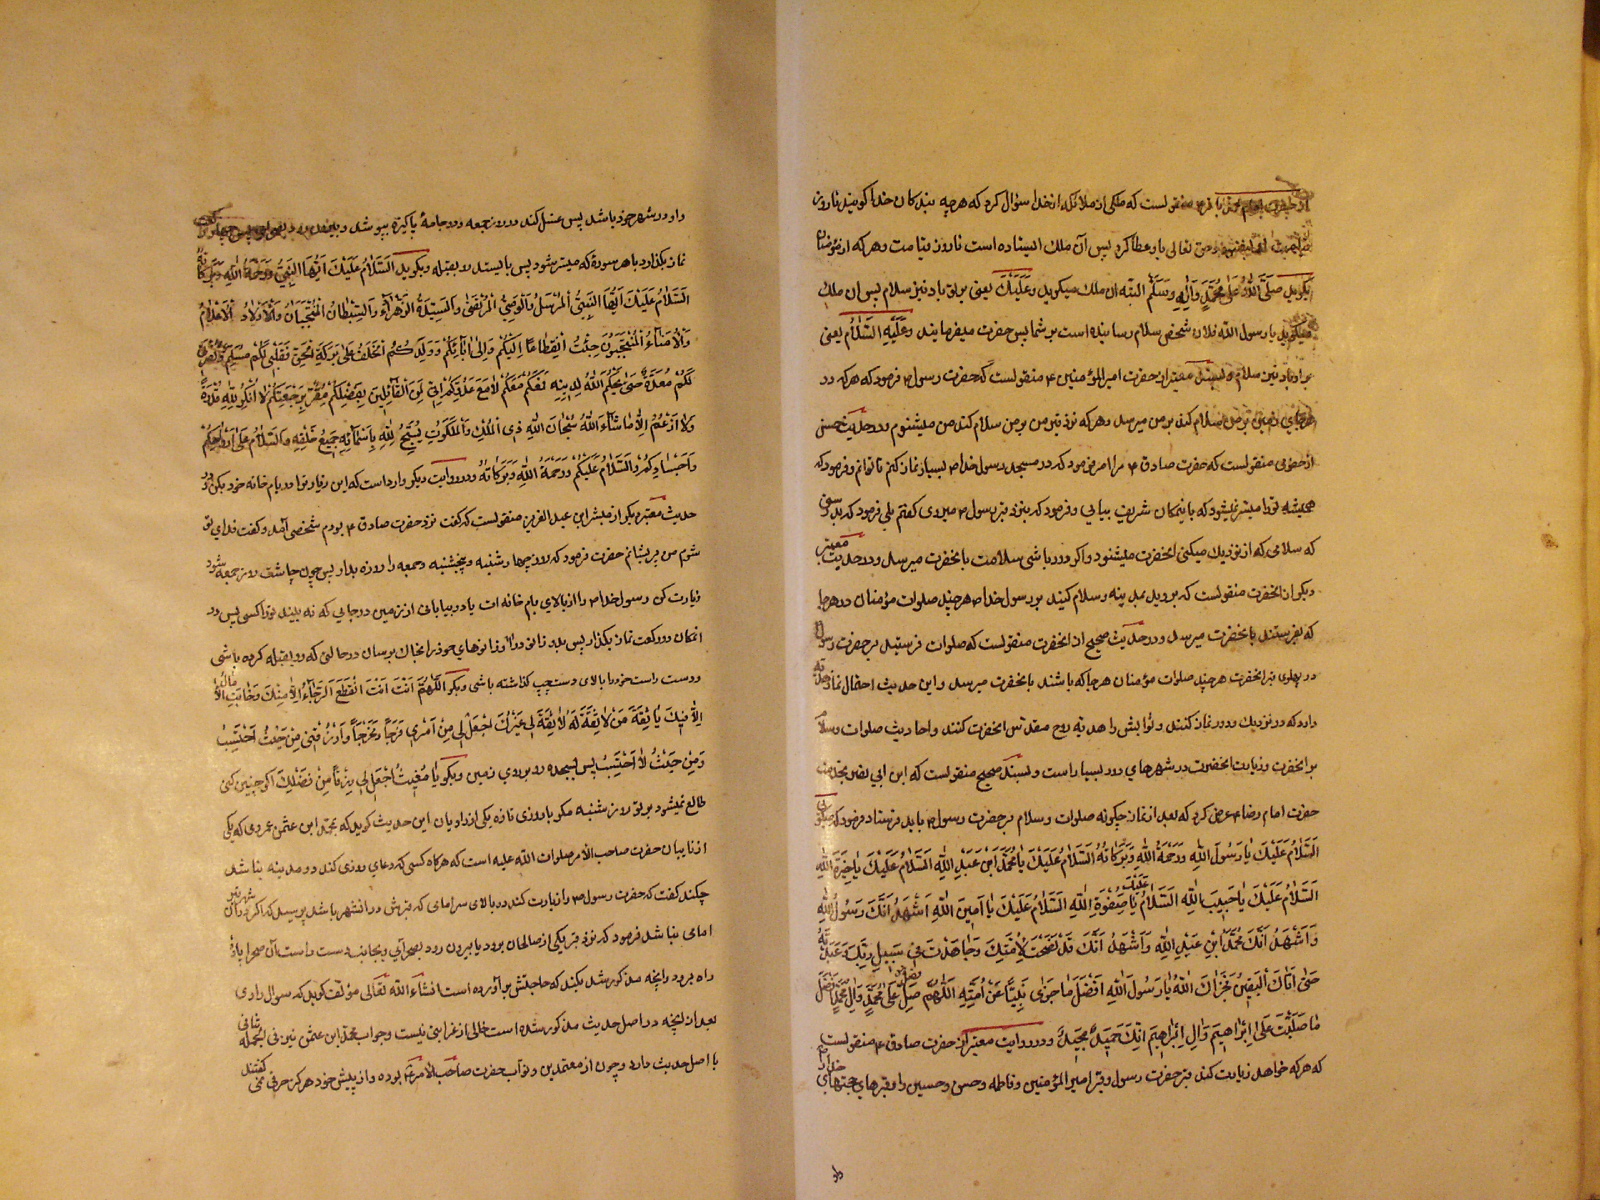 باقر ۴ منقولست که ملکی از ملائکه از خدا سؤال کرد که هرچه بندکان خدا کویند تا روز
حق تعالی باو عطا کرد پس آن ملک ایستاده است تا روز قیامت و هرکه از مؤمنان
بکوید صَلَّی اللّٰهُ عَلیٰ مُحَمَّدٍ وَآلِهِ وَسَلَّمَ البته آن ملک میکوید وَعَلَیْكَ یعنی بر تو باد نیز سلام پس آن ملک
میکوید یا رسول الله فلان شخص سلام رسانیده است بر شما پس حضرت میفرمایند وَعَلَیْهِ السَّلٰامُ یعنی
بر او باد نیز سلام و بسند معتبر از حضرت امیرالمؤمنین ۴ منقولست که حضرت رسول ص فرمود که هرکه در
زمین بر من سلام کند بر من میرسد و هرکه نزد قبر من بر من سلام کند من میشنوم و در حدیث حسن
از حضرمی منقولست که حضرت صادق ۴ مرا امر فرمود که در مسجد رسول خدا ص بسیار نماز کنم تا توانم و فرمود که
همیشه ترا میسّر نمیشود که باینمکان شریف بیایی و فرمود که بنزد قبر رسول ص میروی کفتم بلی فرمود که بدرستی
که سلامی که از نزدیك میکنی آنحضرت میشنود و اکر دور باشی سلامت بآنحضرت میرسد و در حدیث معتبر
دیکر از آنحضرت منقولست که بروید بمدینه و سلام کنید بر رسول خدا ص هرچند صلوات مؤمنان در هرجا
که بفرستند بآنحضرت میرسد و در حدیث صحیح از آنحضرت منقولست که صلوات فرستید بر حضرت رسول
در پهلوی قبر آنحضرت هرچند صلوات مؤمنان هرجا که باشند بآنحضرت میرسد و این حدیث احتمال نماز هدیه
دارد که در نزدیك و دور نماز کنند و ثوابش را هدیه روح مقدّس آنحضرت کنند و احادیث صلوات و سلام
بر آنحضرت و زیارت آنحضرت در شهرهای دور بسیار است و بسند صحیح منقولست که ابن ابی نصر بخدمت
حضرت امام رضا ۴ عرض کرد که بعد از نماز چکونه صلوات و سلام بر حضرت رسول ص باید فرستاد فرمود که میکوئی
اَلسَّلٰامُ عَلَیْكَ یٰا رَسُولَ اللّٰهِ وَرَحْمَةُ اللّٰهِ وَبَرَکٰاتُهُ اَلسَّلٰامُ عَلَیْكَ یٰا مُحَمَّدَ ابْنَ عَبْدِ اللّٰهِ اَلسَّلٰامُ عَلَیْكَ یٰا خِیَرَةَ اللّٰهِ
اَلسَّلٰامُ عَلَیْكَ یٰا حَبِیبَ اللّٰهِ اَلسَّلٰامُ عَلَیْكَ یٰا صَفْوَةَ اللّٰهِ اَلسَّلٰامُ عَلَیْكَ یٰا اَمِینَ اللّٰهِ اَشْهَدُ اَنَّكَ رَسُولُ اللّٰهِ
وَاَشْهَدُ اَنَّكَ مُحَمَّدُ ابْنُ عَبْدِ اللّٰهِ وَاَشْهَدُ اَنَّكَ قَدْ نَصَحْتَ لِاُمَّتِكَ وَجٰاهَدْتَ فِی سَبِیلِ رَبِّكَ وَعَبَدْتَهُ
حَتّیٰ اَتٰاكَ الْیَقِینُ فَجَزٰاكَ اللّٰهُ یٰا رَسُولَ اللّٰهِ اَفْضَلَ مٰا جَزیٰ نَبِیّاً عَنْ اُمَّتِهِ اَللّٰهُمَّ صَلِّ عَلیٰ مُحَمَّدٍ وَآلِ مُحَمَّدٍ اَفْضَلَ
مٰا صَلَّیْتَ عَلیٰ اِبْرٰاهِیمَ وَآلِ اِبْرٰاهِیمَ اِنَّكَ حَمِیدٌ مَجِیدٌ و در روایت معتبر از حضرت صادق ۴ منقولست
که هرکه خواهد زیارت کند قبر حضرت رسول و قبر امیرالمؤمنین و فاطمه و حسن و حسین و قبرهای حجتهای
داو
داو در شهر خود باشد پس غسل کند در روز جمعه و دو جامۀ پاکیزه بپوشد و بیرون رود
نماز بکذارد با هر سورۀ که میسّر شود پس بایستد رو بقبله و بکوید اَلسَّلٰامُ عَلَیْكَ اَیُّهَا النَّبِیُّ وَرَحْمَةُ اللّٰهِ وَبَرَکٰاتُهُ
اَلسَّلٰامُ عَلَیْكَ اَیُّهَا النَّبِیُّ الْمُرْسَلُ وَالْوَصِیُّ الْمُرْتَضیٰ وَالسَّیِّدَةُ الزَّهْرٰاءُ وَالسِّبْطٰانِ الْمُنْتَجَبٰانِ وَالْاَوْلٰادُ الْاَعْلٰامُ
وَالْاُمَنٰاءُ الْمُنْتَجَبُونَ جِئْتُ اِنْقِطٰاعاً اِلَیْکُمْ وَاِلیٰ آبٰائِکُمْ وَوَلَدِکُمُ الْخَلَفِ عَلیٰ بَرَکَةِ الْحَقِّ فَقَلْبِی لَکُمْ مُسَلِّمٌ وَنُصْرَتِی
لَکُمْ مُعَدَّةٌ حَتّیٰ یَحْکُمَ اللّٰهُ لِدِینِهِ فَمَعَکُمْ مَعَکُمْ لٰا مَعَ عَدُوِّکُمْ اِنِّی لَمِنَ الْقٰائِلِینَ بِفَضْلِکُمْ مُقِرٌّ بِرَجْعَتِکُمْ لٰا اُنْکِرُ لِلّٰهِ قُدْرَةً
وَلٰا اَزْعُمُ اِلّٰا مٰا شٰاءَ اللّٰهُ سُبْحٰانَ اللّٰهِ ذِی الْمُلْكِ وَالْمَلَکُوتِ یُسَبِّحُ لِلّٰهِ بِاَسْمٰائِهِ جَمِیعُ خَلْقِهِ وَالسَّلٰامُ عَلیٰ اَرْوٰاحِکُمْ
وَاَجْسٰادِکُمْ وَالسَّلٰامُ عَلَیْکُمْ وَرَحْمَةُ اللّٰهِ وَبَرَکٰاتُهُ و در روایت دیکر وارد است که این زیارترا در بام خانه خود بکن و در
حدیث معتبر دیکر از مبشر ابن عبد العزیز منقولست که کفت نزد حضرت صادق ۴ بودم شخصی آمد و کفت فدای تو
شوم من پریشانم حضرت فرمود که روز چهارشنبه و پنجشنبه و جمعه را روزه بدار پس چون چاشت روز جمعه شود
زیارت کن رسول خدا ص را از بالای بام خانه ات یا در بیابانی از زمین در جایی که نه بیند ترا کسی پس در
آنمکان دو رکعت نماز بکذار پس بدو زانو درآ و زانوهای خود را بخاك برسان در حالتی که رو بقبله کرده باشی
و دست راست خود را بالای دست چپ کذاشته باشی و بکو اَللّٰهُمَّ اَنْتَ اَنْتَ اِنْقَطَعَ الرَّجٰاءُ اِلّٰا مِنْكَ وَخٰابَتِ الْآمٰالُ
اِلّٰا فِیكَ یٰا ثِقَةَ مَنْ لٰا ثِقَةَ لَهُ لٰا ثِقَةَ لِی غَیْرُكَ اِجْعَلْ لِی مِنْ اَمْرِی فَرَجاً وَمَخْرَجاً وَارْزُقْنِی مِنْ حَیْثُ اَحْتَسِبُ
وَمِنْ حَیْثُ لٰا اَحْتَسِبُ پس بسجده رو بر روی زمین و بکو یٰا مُغِیثُ اِجْعَلْ لِی رِزْقاً مِنْ فَضْلِكَ اکر چنین کنی
طالع نمیشود بر تو روز شنبه مکر با روزی تازه یکی از راویان این حدیث کوید که بمحمّد ابن عثمن عمروی که یکی
از نایبان حضرت صاحب الامر صلوات الله علیه است که هرکاه کسی که دعای روزی کند در مدینه نباشد
چکند کفت که حضرت رسول ص را زیارت کند در بالای سر امامی که قبرش در آنشهر باشد پرسید که اکر در آن شهر قبر
امامی نباشد فرمود که نزد قبر یکی از صالحان برود یا بیرون رود بصحرائی و بجانب دست راست آن صحرا
راه برود و آنچه مذکور شد بکند که حاجتش برآورده است انشاء الله تعالی مؤلّف کوید که سؤال راوی
بعد از آنچه در اصل حدیث مذکور شده است خالی از غرابتی نیست و جواب محمّد ابن عثمن نیز فی الجمله منافی
با اصل حدیث دارد و چون از معتمدین و نوّاب حضرت صاحب الامر بوده و از پیش خود هرکز حرفی نمی کفتند